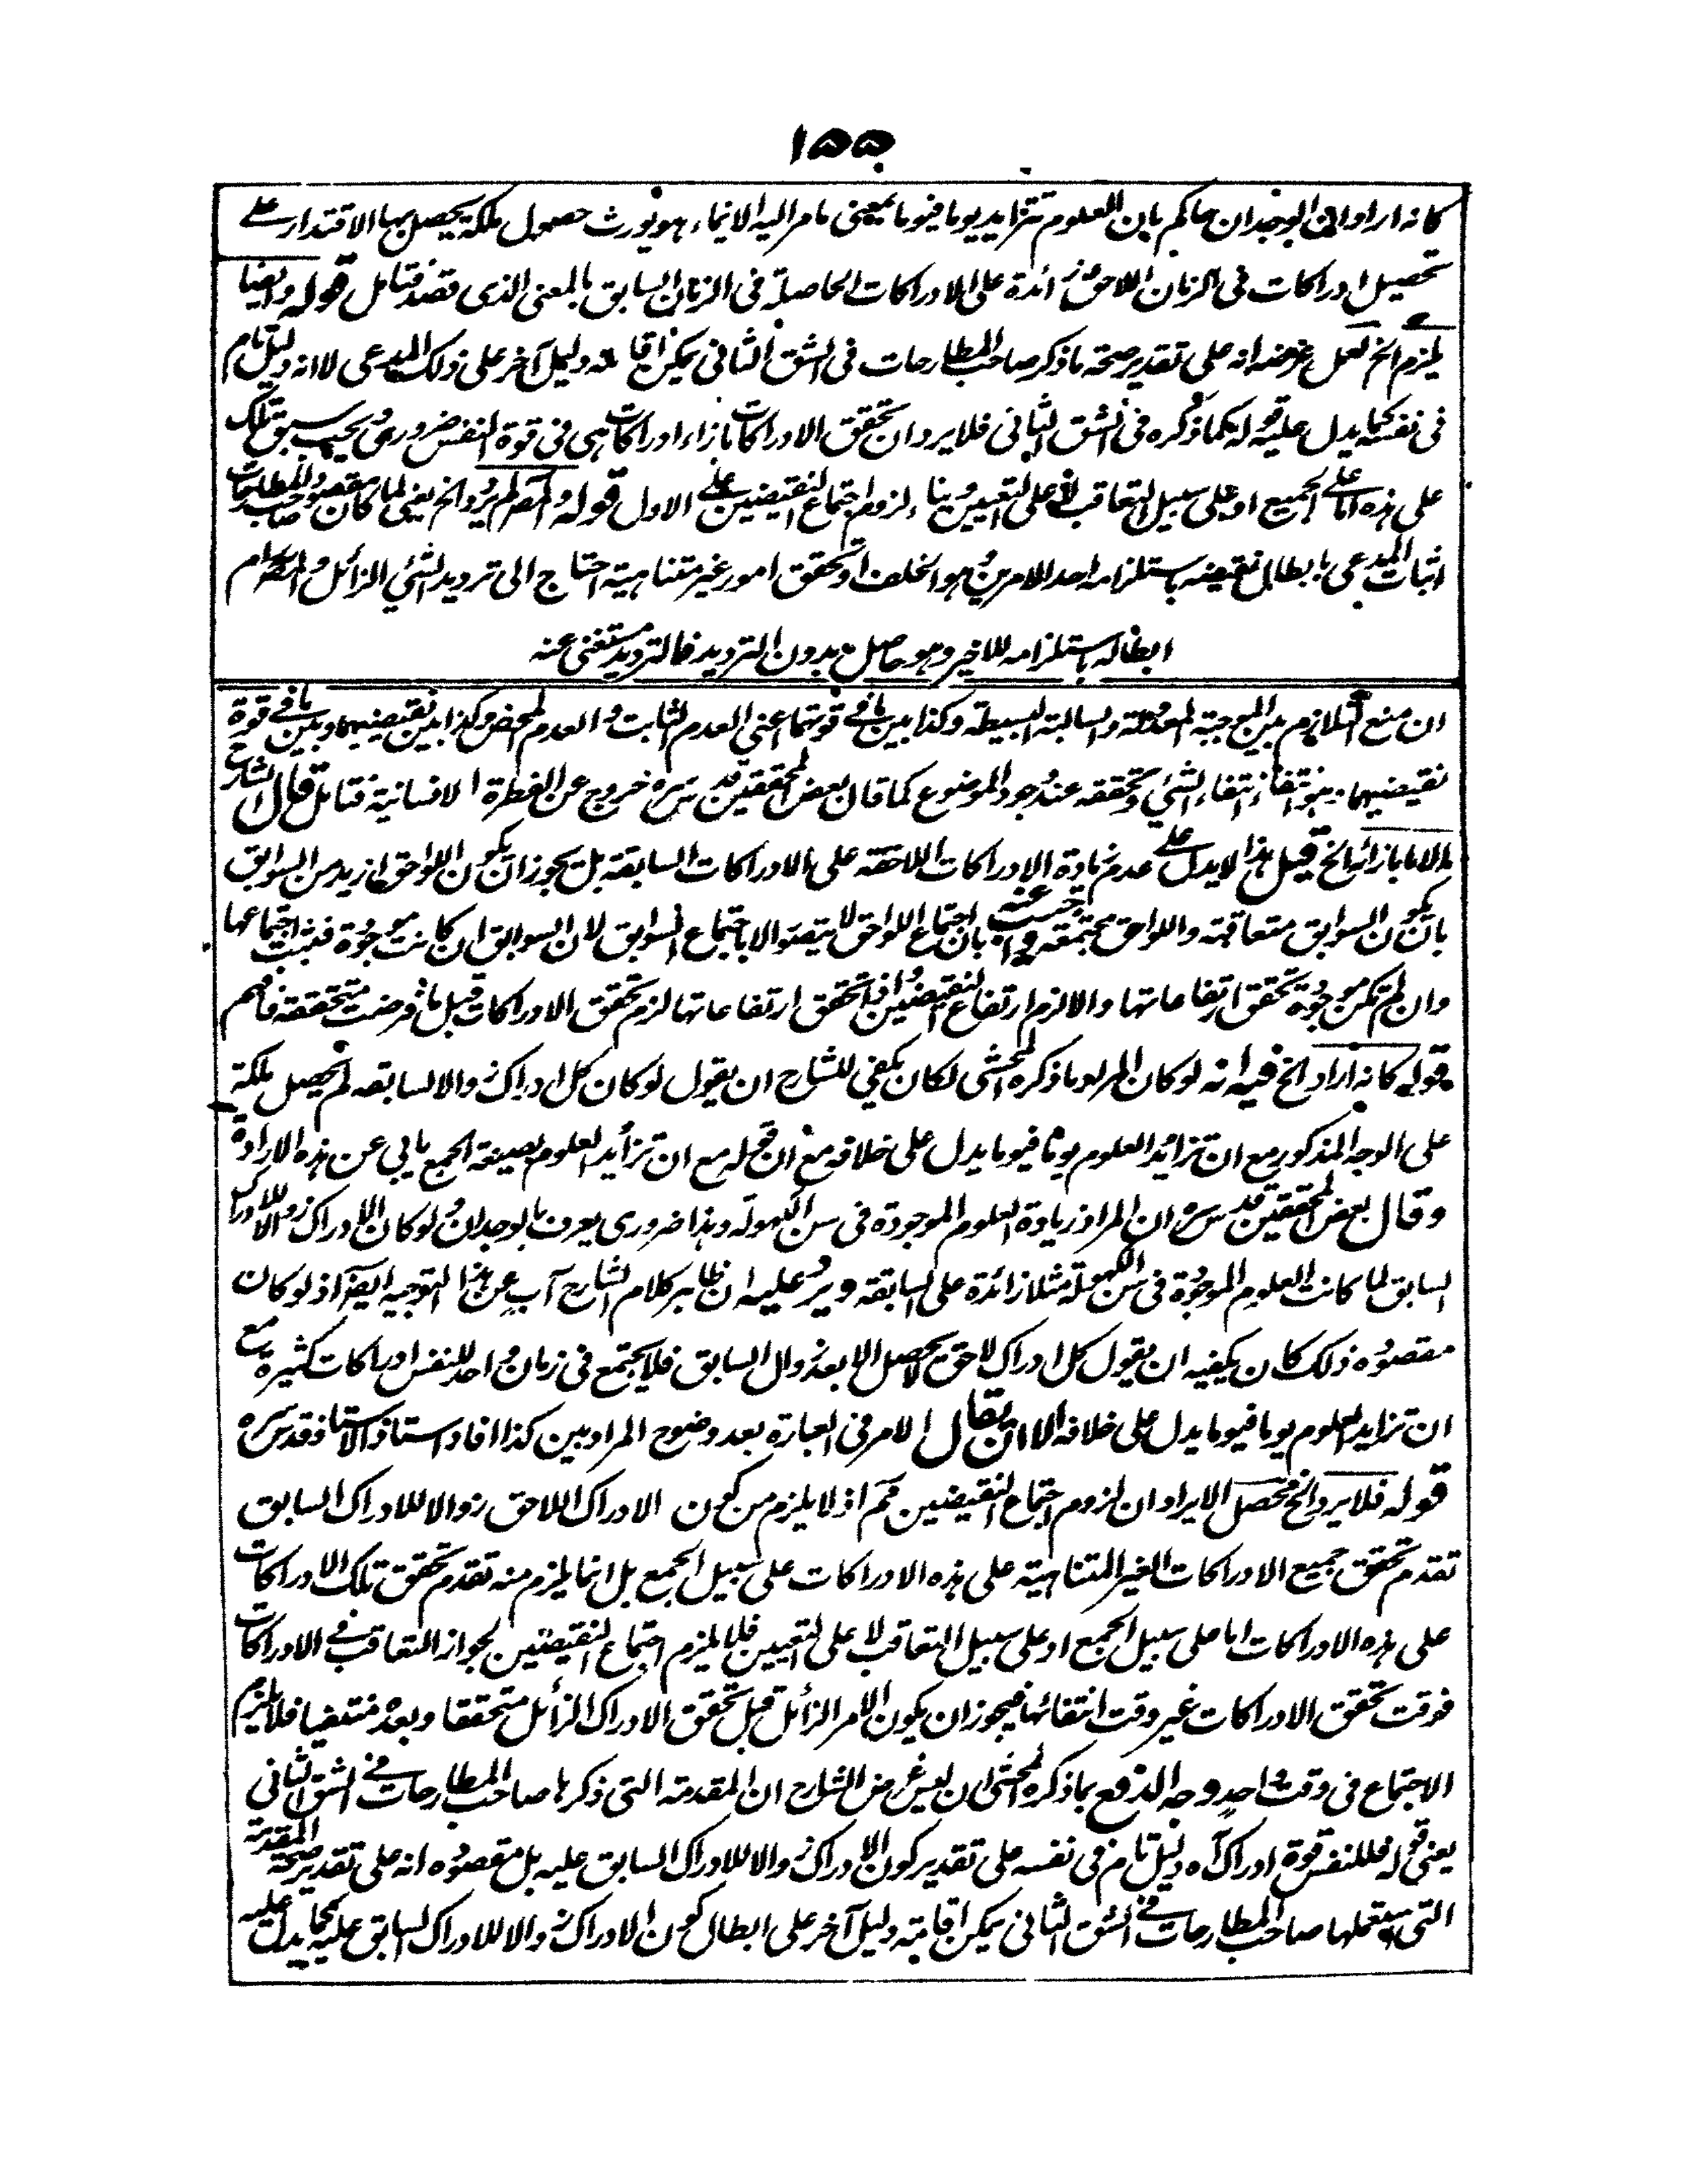 ۱۵۵
كانه اراد ان الوجدان حاكم بان العلوم تتزايد يوما فيوما بمعنى ما مر اليه الايماء هو يورث حصول ملكة يحصل بها الاقتدار على
تحصيل ادراكات فى الزمان اللاحق زائدة على الادراكات الحاصلة فى الزمان السابق بالمعنى الذى قصد فتامل قوله وايضا
يلزم الخ لعل غرضه انه على تقدير صحة ما ذكر صاحب المطارحات فى الشق الثانى يمكن اقامة دليل آخر على ذلك المدعى لا انه دليل تام
فى نفسه كما يدل عليه قوله كما ذكره فى الشق الثانى فلا يرد ان تحقق الادراكات بازاء ادراكات هى فى قوة النفس ضرورى يجب سبق تلك
على هذه اما على الجميع او على سبيل التعاقب لا على التعيين وبناء لزوم اجتماع النقيضين على الاول قوله لم يرد الخ يعنى لما كان مقصود صاحب المطارحات
اثبات المدعى بابطال نقيضه باستلزامه احد الامرين هو الخلف او تحقق امور غير متناهية احتاج الى ترديد الشئ الزائل و
ابطاله باستلزامه للاخير وهو حاصل بدون الترديد فالترديد مستغنى عنه
ان منع التلازم بين الموجبة المعدولة والسالبة البسيطة وكذا بين ما فى قوتهما اعنى العدم الثابت والعدم المحض وكذا بين نقيضيهما وبين ما فى قوة
نقيضيهما هو انتفاء انتفاء الشئ وتحققه عند وجود الموضوع كما قال بعض المحققين قدس سره خروج عن الفطرة الانسانية فتامل قال الشارح
والا ما بازائها الخ قيل هذا لا يدل على عدم زيادة الادراكات اللاحقة على الادراكات السابقة بل يجوز ان يكون اللواحق ازيد من السوابق
بان يكون السوابق متعاقبة واللواحق مجتمعة واجيب عنه بان اجتماع اللواحق لا يتصور الا باجتماع السوابق لان السوابق ان كانت موجودة فثبت اجتماعها
وان لم تكن موجودة تحقق ارتفاعاتها والا لزم ارتفاع النقيضين واذا تحقق ارتفاعاتها لزم تحقق الادراكات قبل ما فرضت متحققة فافهم
قوله كانه اراد الخ فيه انه لو كان المراد ما ذكره المحشى لكان يكفى للشارح ان يقول لو كان كل ادراك زوالا لسابقه لم تحصل ملكة
على الوجه المذكور مع ان تزايد العلوم يوما فيوما يدل على خلافه مع ان قوله مع ان تزايد العلوم بصيغة الجمع يابى عن هذه الارادة
وقال بعض المحققين قدس سره ان المراد زيادة العلوم الموجودة فى سن الكهولة وهذا ضرورى يعرف بالوجدان ولو كان الادراك زوالا للادراك
السابق لما كانت العلوم الموجودة فى سن الكهولة مثلا زائدة على السابقة ويرد عليه ان ظاهر كلام الشارح آب عن هذا التوجيه ايضا اذ لو كان
مقصوده ذلك كان يكفيه ان يقول كل ادراك لاحق لا يحصل الا بعد زوال السابق فلا يجتمع فى زمان واحد للنفس ادراكات كثيرة مع
ان تزايد العلوم يوما فيوما يدل على خلافه الا ان يقال الامر فى العبارة بعد وضوح المراد بين كذا افاد استاذ الاستاذ قدس سره
قوله فلا يرد الخ محصل الايراد ان لزوم اجتماع النقيضين مم اذ لا يلزم من كون الادراك اللاحق زوالا للادراك السابق
تقدم تحقق جميع الادراكات الغير المتناهية على هذه الادراكات على سبيل الجمع بل انما يلزم منه تقدم تحقق تلك الادراكات
على هذه الادراكات اما على سبيل الجمع او على سبيل التعاقب لا على التعيين فلا يلزم اجتماع النقيضين لجواز التعاقب فى الادراكات
فوقت تحقق الادراكات غير وقت انتفائها فيجوز ان يكون الامر الزائل قبل تحقق الادراك الزائل متحققا وبعده منتفيا فلا يلزم
الاجتماع فى وقت واحد وجه الدفع بما ذكره المحشى ان ليس غرض الشارح ان المقدمة التى ذكرها صاحب المطارحات فى الشق الثانى
يعنى قوله فللنفس قوة ادراك آه دليل تام فى نفسه على تقدير كون الادراك زوالا للادراك السابق عليه بل مقصوده انه على تقدير صحة المقدمة
التى استعملها صاحب المطارحات فى الشق الثانى يمكن اقامة دليل آخر على ابطال كون الادراك زوالا للادراك السابق عليه كما يدل عليه